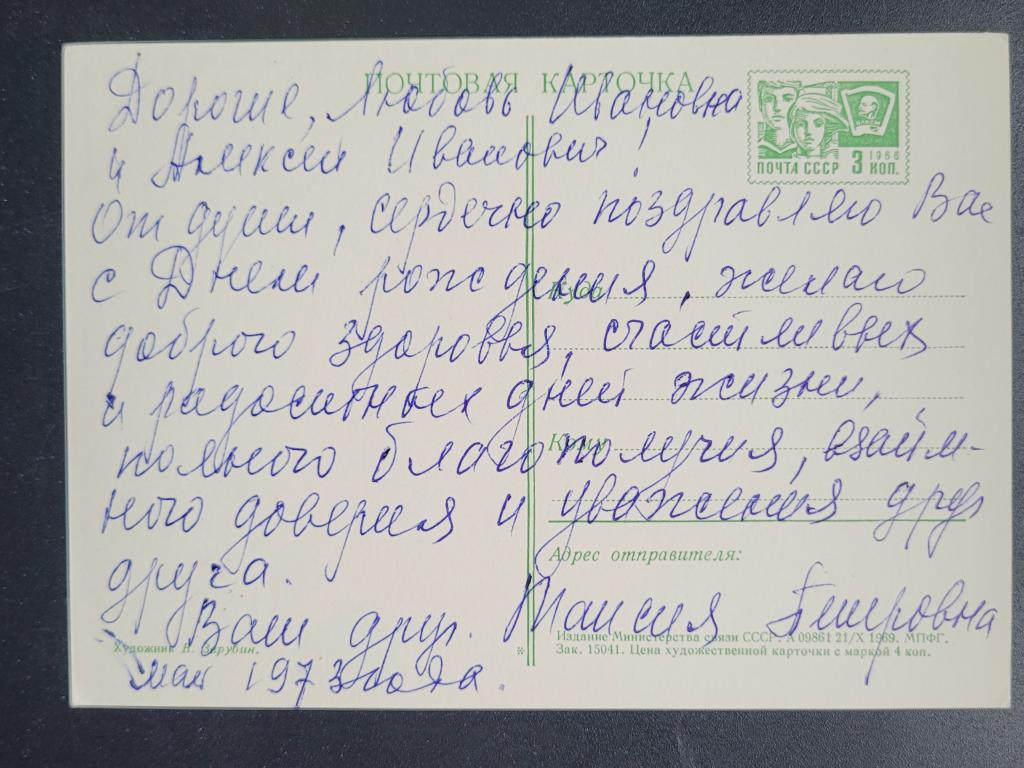 ПОЧТОВАЯ КАРТОЧКА
Дорогие, Любовь Ивановна
и Алексей Иванович!
От души, сердечно поздравляю Вас
с Днем рождения, желаю
доброго здоровья, счастливых
и радостных дней жизни,
полного благополучия, взаим-
ного доверия и уважения друг
друга.
Ваш друг. Таисия Петровна
май 1973 года.
ПОЧТА СССР 3 1966 КОП.
Куда
Кому
Адрес отправителя:
Издание Министерства связи СССР. А 09861 21/X 1969. МПФГ.
Зак. 15041. Цена художественной карточки с маркой 4 коп.
Художник В. Зарубин.